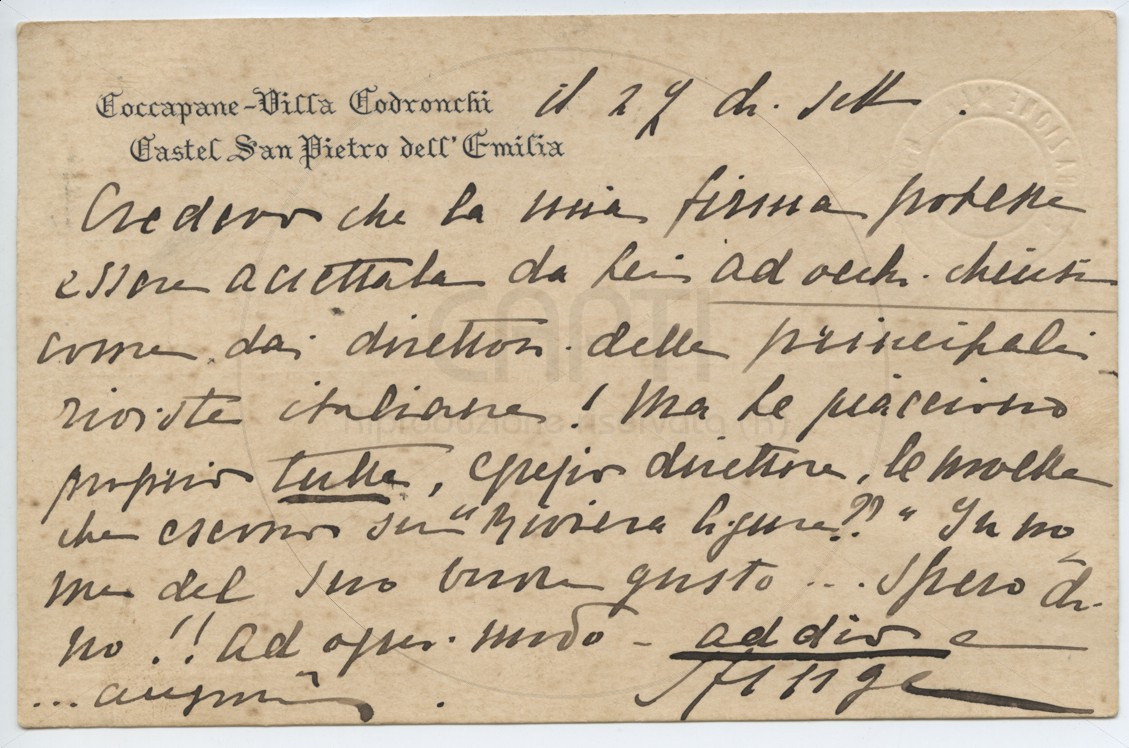 Coccapane-Villa Codronchi
Castel San Pietro dell'Emilia
il 27 di sett.
Credevo che la mia firma potesse
essere accettata da Lei ad occhi chiusi
come dai direttori delle principali
riviste italiane! Ma Le piacciono
proprio tutte, egregio direttore, le novelle
che escono su "Riviera Ligure??" In no
me del Suo buon gusto ... spero di
no!! Ad ogni modo - addio e
... auguri.
Sfinge
CAPTI
riproduzione riservata (R)